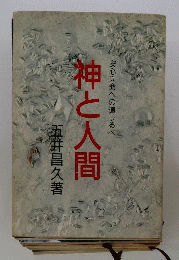 安心立命への道しるべ
神と人間
五井昌久著